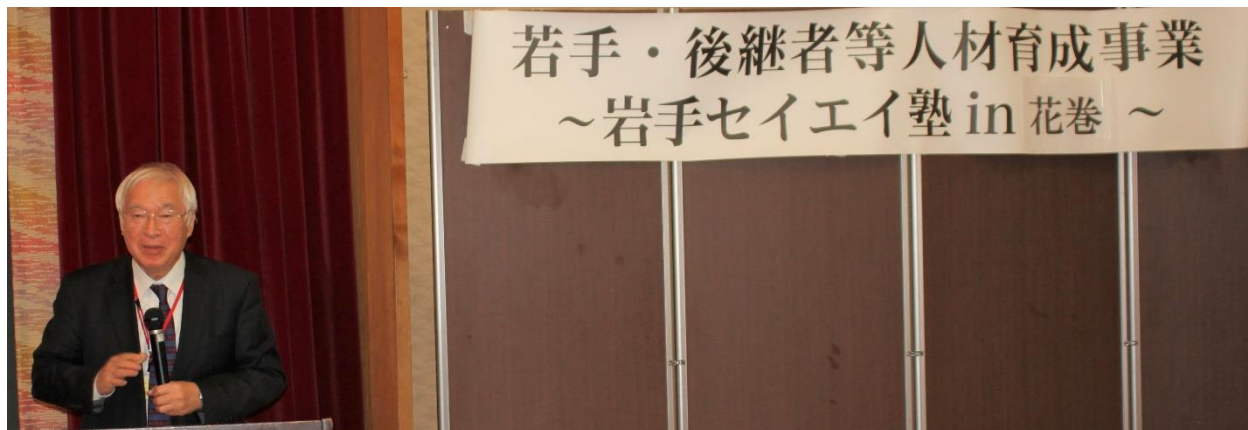 若手・後継者等人材育成事業
～岩手セイエイ塾 in 花巻 ～